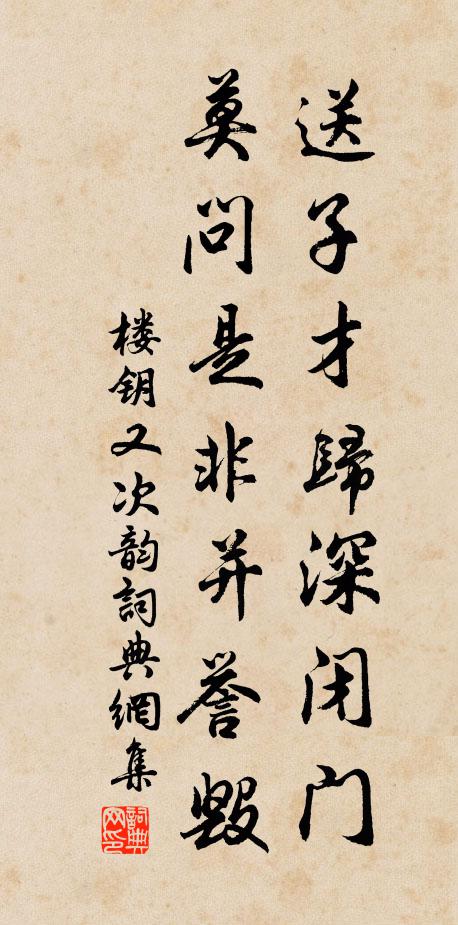 送子才歸深闭门
莫问是非并誉毁
楼钥又次韵詞典網集
詞典
网印